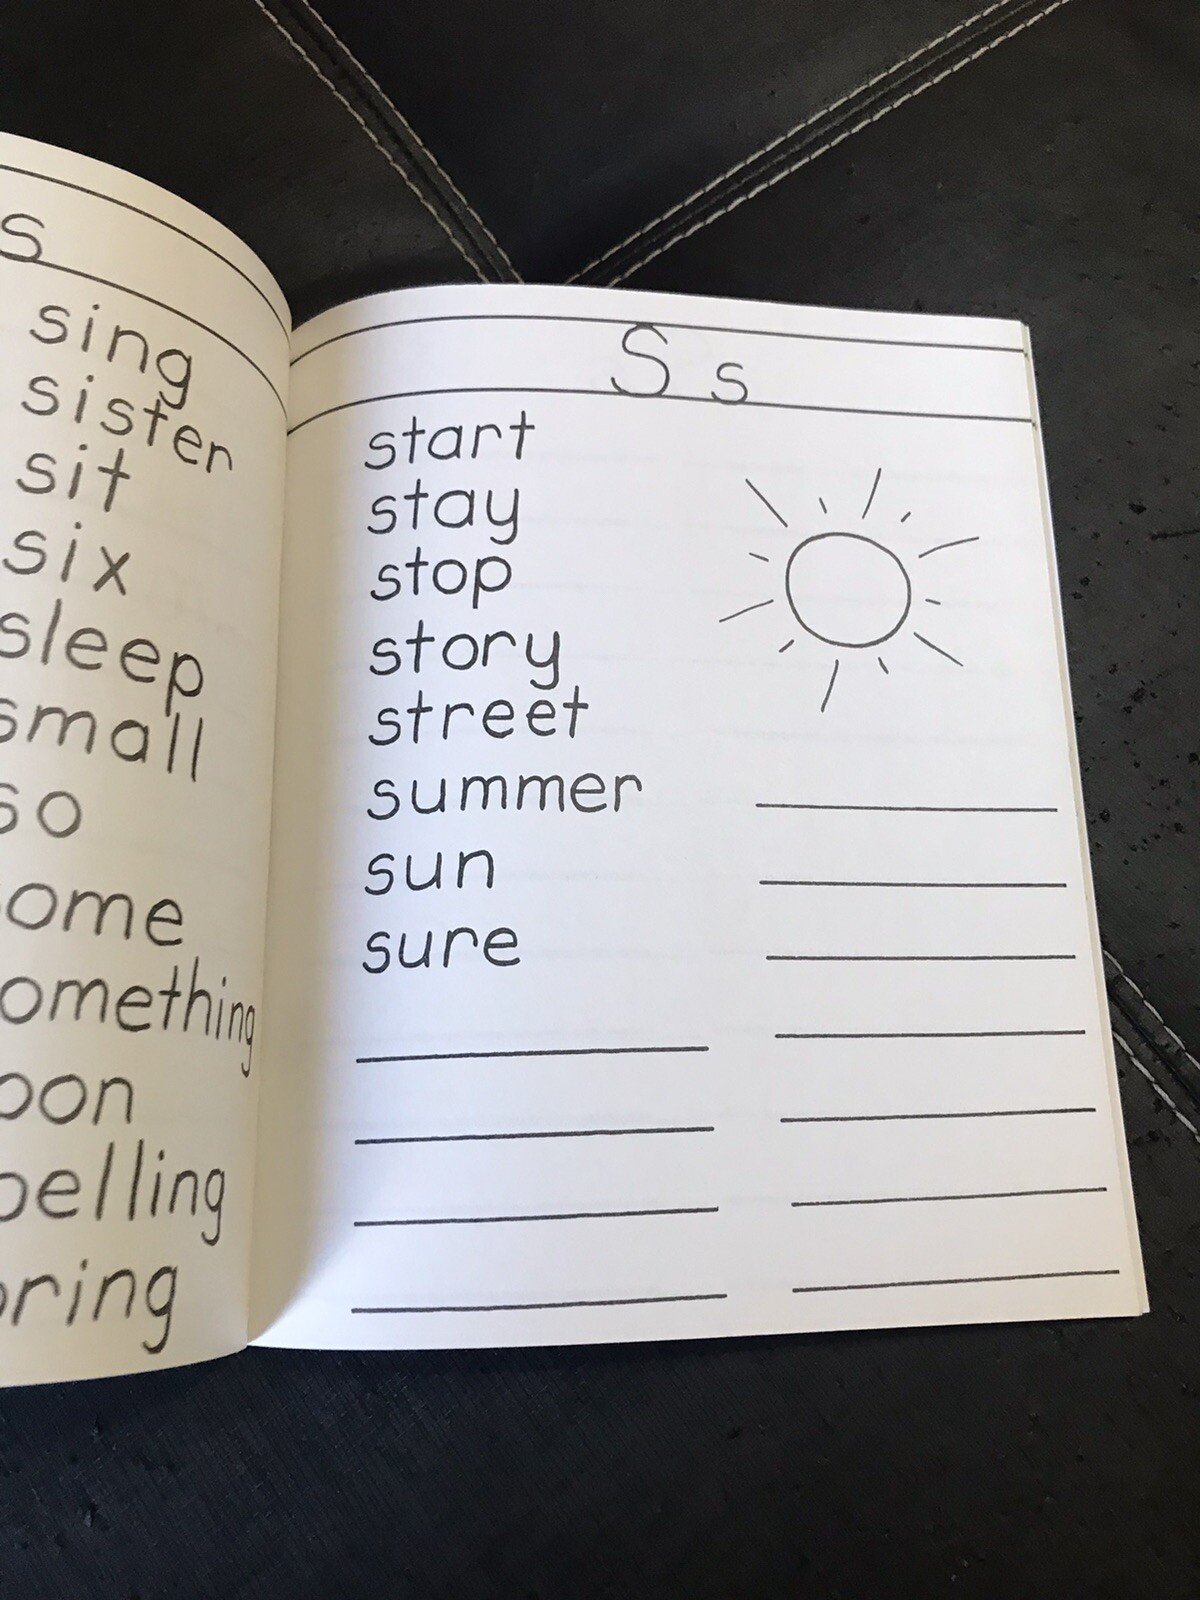 s
sing
sister
sit
six
sleep
small
so
ome
omething
oon
pelling
pring
S s
start
stay
stop
story
street
summer
sun
sure